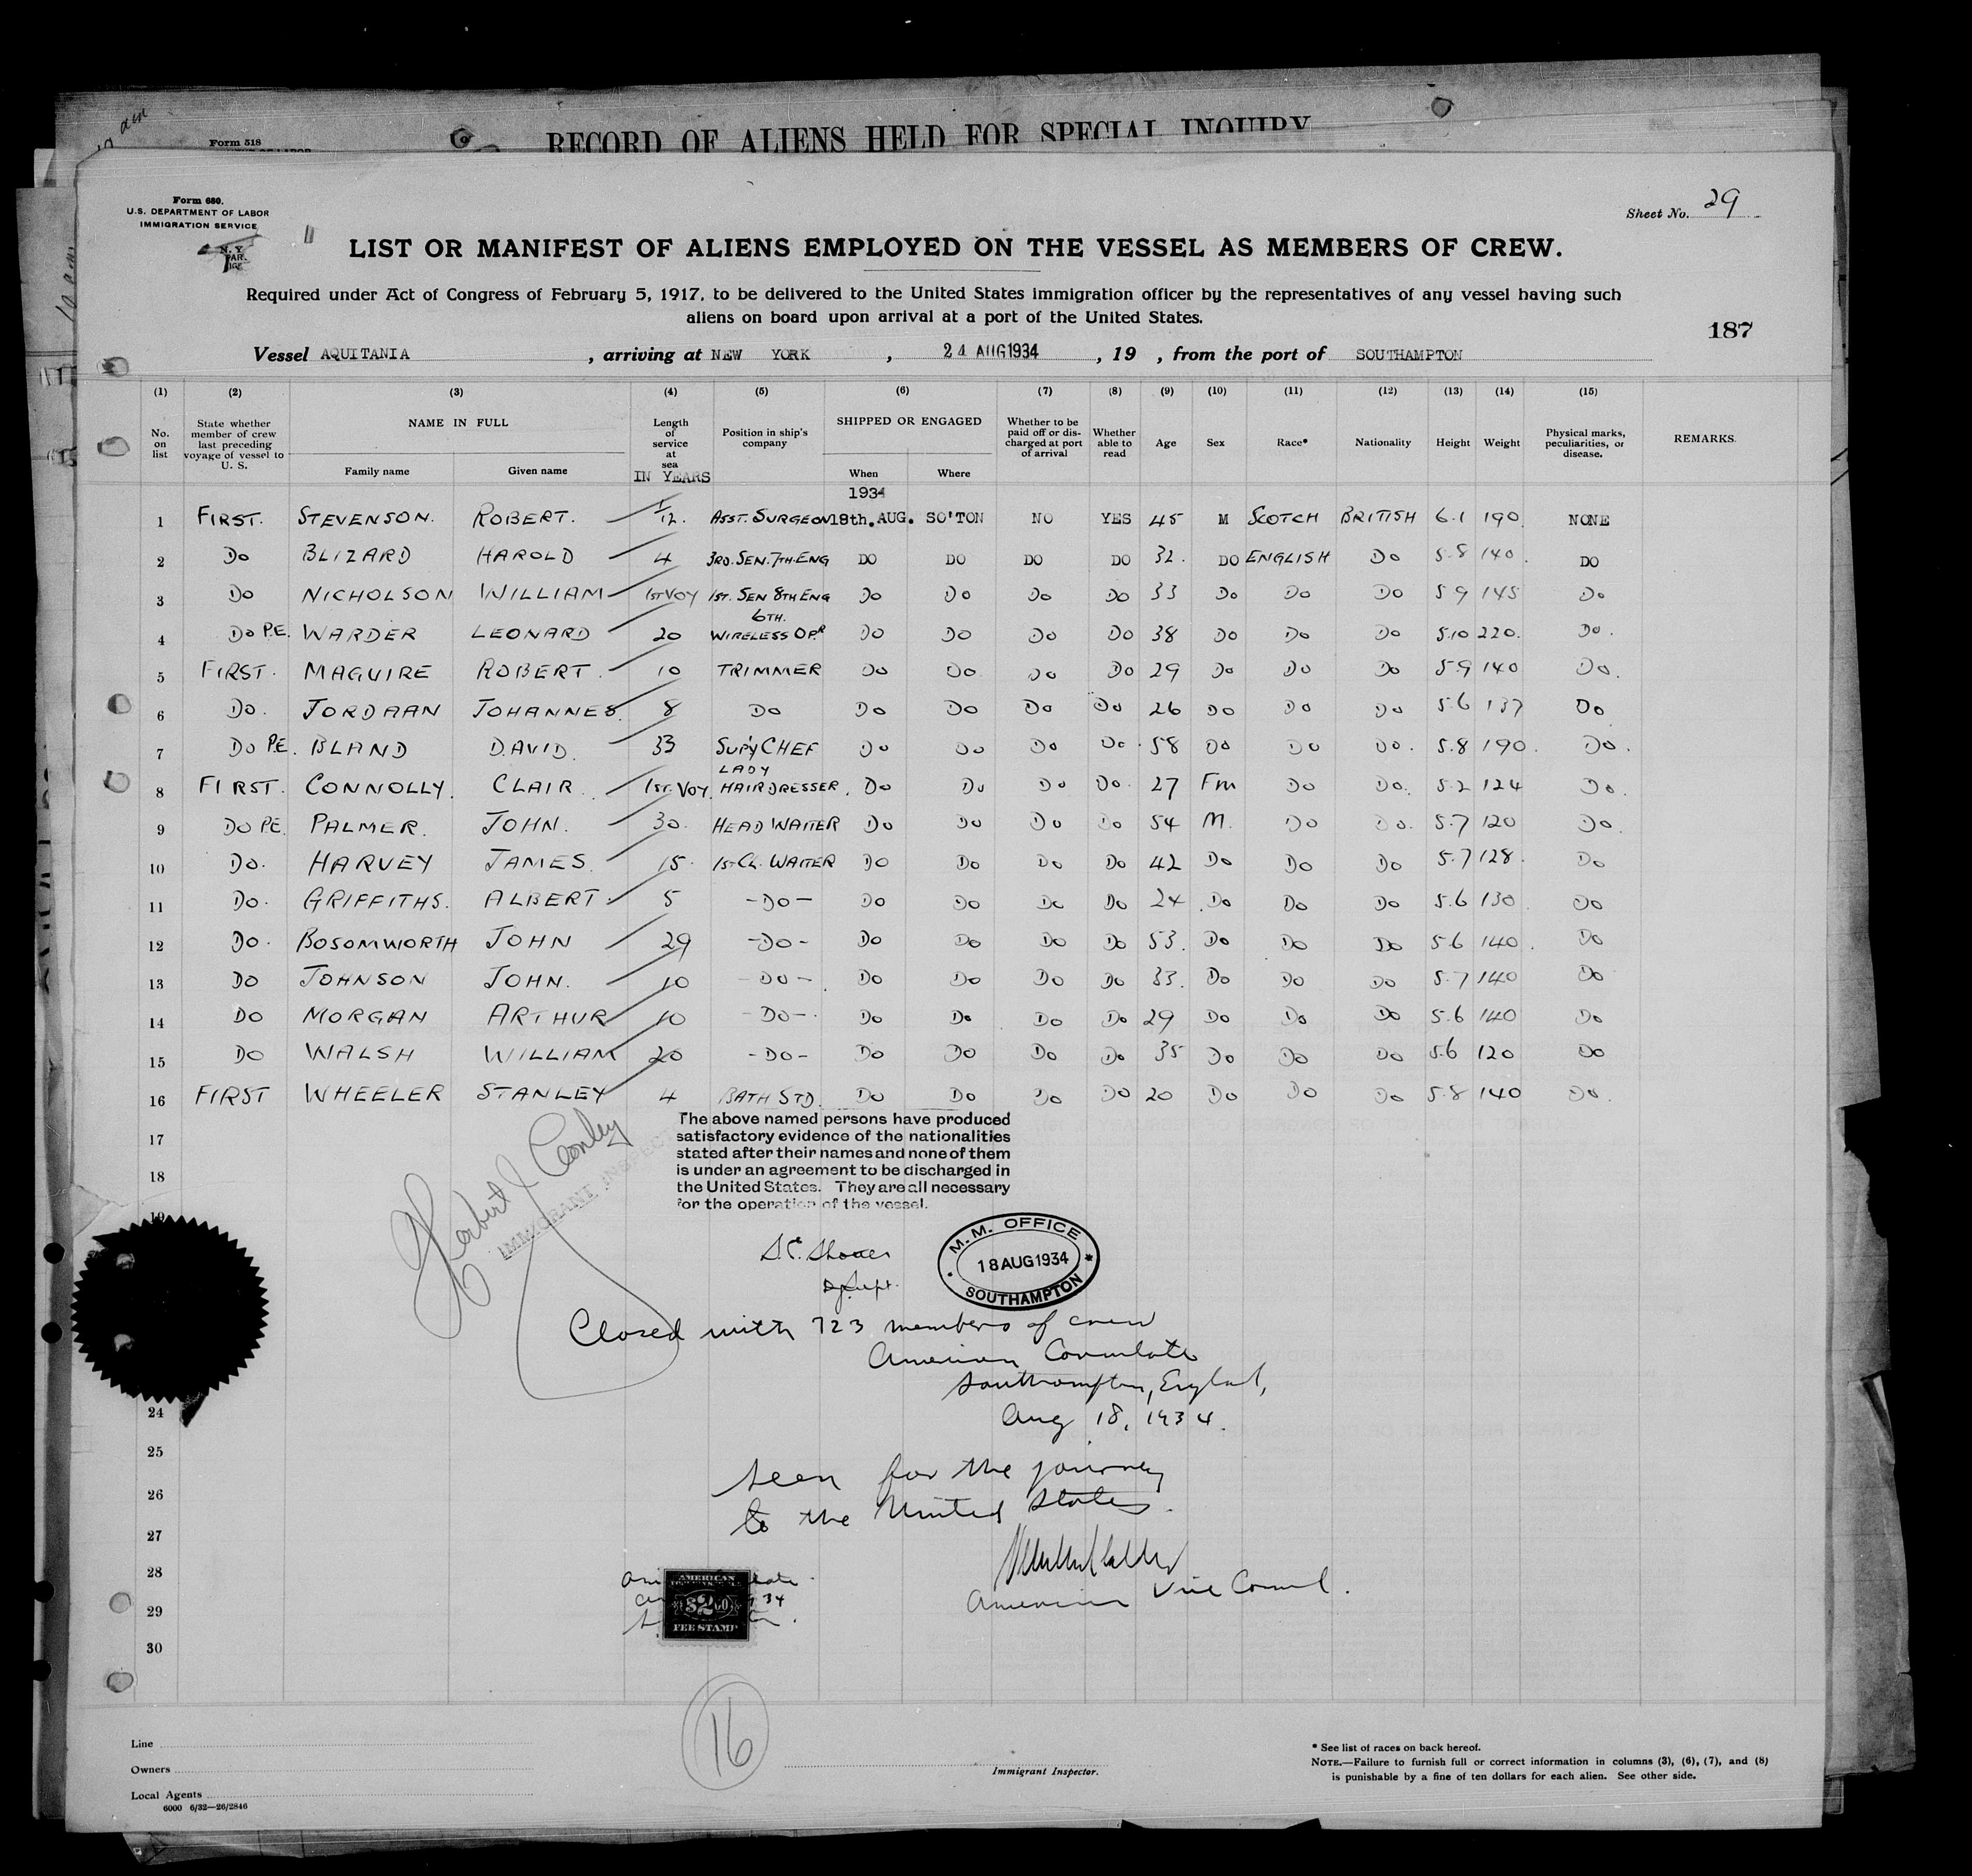 Form 518
RECORD OF ALIENS HELD FOR SPECIAL INQUIRY
Form 680.
U.S. DEPARTMENT OF LABOR
IMMIGRATION SERVICE
Sheet No. 29
LIST OR MANIFEST OF ALIENS EMPLOYED ON THE VESSEL AS MEMBERS OF CREW.
Required under Act of Congress of February 5, 1917, to be delivered to the United States immigration officer by the representatives of any vessel having such
aliens on board upon arrival at a port of the United States.
187
Vessel AQUITANIA, arriving at NEW YORK, 24 AUG 1934, 19 , from the port of SOUTHAMPTON
(1) (2) (3) (4) (5) (6) (7) (8) (9) (10) (11) (12) (13) (14) (15)
No. on list
State whether member of crew last preceding voyage of vessel to U. S.
NAME IN FULL
Family name Given name
Length of service at sea
IN YEARS
Position in ship's company
SHIPPED OR ENGAGED
When Where
Whether to be paid off or discharged at port of arrival
Whether able to read
Age
Sex
Race*
Nationality
Height
Weight
Physical marks, peculiarities, or disease.
REMARKS.
1934
1 FIRST. STEVENSON. ROBERT. 1/12. ASST. SURGEON 18th. AUG. SO'TON NO YES 45 M SCOTCH BRITISH 6.1 190 NONE
2 DO BLIZARD HAROLD 4 3RD. SEN. 7TH. ENG DO DO DO DO 32. DO ENGLISH DO 5.8 140. DO
3 DO NICHOLSON WILLIAM 1ST VOY 1ST. SEN 8TH ENG DO DO DO DO 33 DO DO DO 5.9 145 DO
4 DO P.E. WARDER LEONARD 20 6TH. WIRELESS OPR DO DO DO DO 38 DO DO DO 5.10 220. DO.
5 FIRST. MAGUIRE ROBERT. 10 TRIMMER DO DO DO DO 29 DO DO DO 5.9 140 DO.
6 DO. JORDAAN JOHANNES. 8 DO DO DO DO DO 26 DO DO DO 5.6 137 DO
7 DO P.E. BLAND DAVID. 33 SUPY CHEF DO DO DO DO. 58 DO DO DO. 5.8 190. DO.
8 FIRST. CONNOLLY. CLAIR. 1ST. VOY. LADY HAIRDRESSER. DO DO DO DO. 27 Fm DO DO. 5.2 124 DO.
9 DO P.E. PALMER. JOHN. 30. HEAD WAITER DO DO DO DO 54 M. DO DO. 5.7 120 DO.
10 DO. HARVEY JAMES. 15. 1ST CL. WAITER DO DO DO DO 42 DO DO DO 5.7 128. DO
11 DO. GRIFFITHS. ALBERT. 5 -DO- DO DO DO DO 24 DO DO DO 5.6 130. DO
12 DO. BOSOMWORTH JOHN 29 -DO- DO DO DO DO 53. DO DO DO 5.6 140. DO
13 DO JOHNSON JOHN. 10 -DO-. DO DO DO DO 33. DO DO DO 5.7 140 DO
14 DO MORGAN ARTHUR 10 -DO-. DO DO DO DO 29 DO DO DO 5.6 140 DO
15 DO WALSH WILLIAM 20 -DO- DO DO DO DO 35 DO DO DO 5.6 120 DO
16 FIRST WHEELER STANLEY 4 BATH STD. DO DO DO DO 20 DO DO DO 5.8 140 DO.
17
18
19
The above named persons have produced
satisfactory evidence of the nationalities
stated after their names and none of them
is under an agreement to be discharged in
the United States. They are all necessary
for the operation of the vessel.
Herbert J Conley
IMMIGRANT INSPECTOR
M. M. OFFICE
18 AUG 1934
SOUTHAMPTON
Closed with 723 members of crew
American Consulate
Southampton, England,
Aug 18, 1934.
24
25
26
27
28
29
30
Seen for the journey
to the United States.
American Vice Consul.
AMERICAN
$2.00
FEE STAMP
16
Line
Owners
Local Agents
6000 6/32—26/2846
Immigrant Inspector.
* See list of races on back hereof.
NOTE.—Failure to furnish full or correct information in columns (3), (6), (7), and (8)
is punishable by a fine of ten dollars for each alien. See other side.